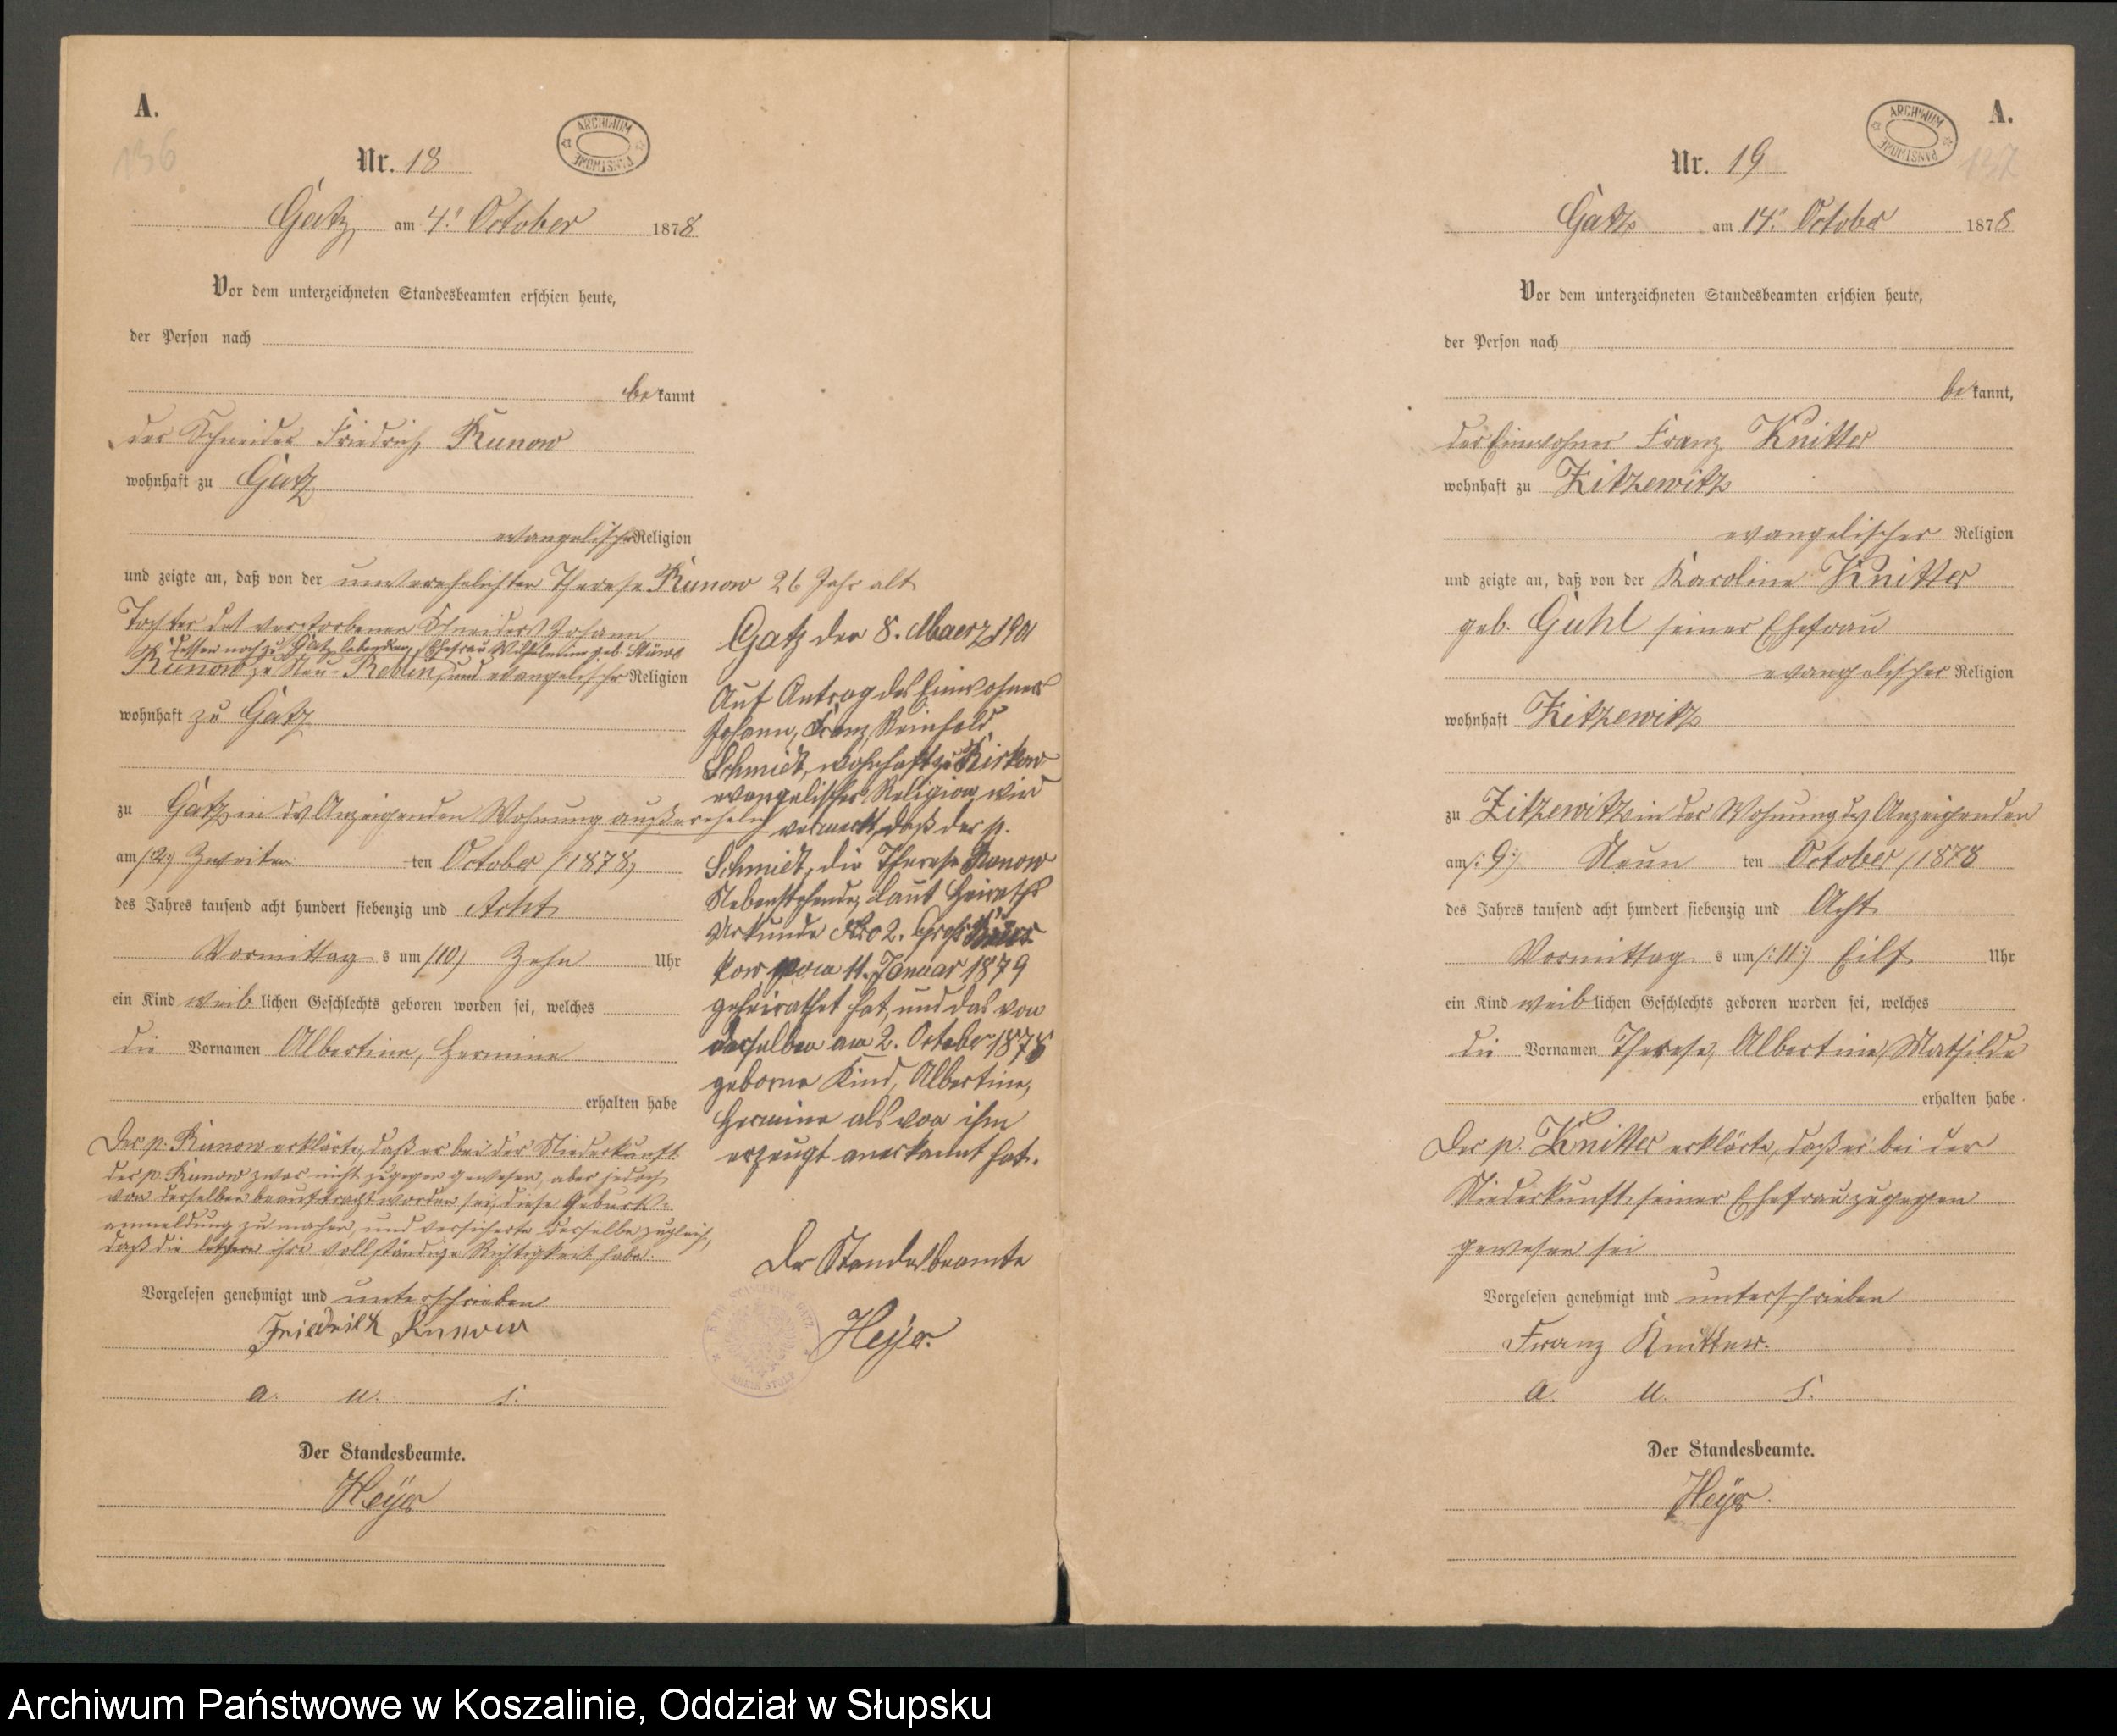 A.
136
Nr. 18
ARCHIWUM PAŃSTWOWE
Gatz am 4. October 1878
Vor dem unterzeichneten Standesbeamten erschien heute,
der Person nach
bekannt
der Schneider Friedrich Runow
wohnhaft zu Gatz
evangelischer Religion
und zeigte an, daß von der unverehelichten Therese Runow 26 Jahr alt
Tochter des verstorbenen Schneiders Johann
dessen noch zu Gatz lebenden Ehefrau Wilhelmine geb.
Runow zu Neu-Reblin, und evangelischer Religion
wohnhaft zu Gatz
zu Gatz in des Anzeigenden Wohnung außerehelich
am /2/ Zweiten ten October /:1878/
des Jahres tausend acht hundert siebenzig und Acht
Vormittag s um /10/ Zehn Uhr
ein Kind weiblichen Geschlechts geboren worden sei, welches
die Vornamen Albertine, Hermine
erhalten habe
Der p. Runow erklärte, daß er bei der Niederkunft
der p. Runow zwar nicht zugegen gewesen, aber jedoch
von derselben beauftragt worden sei, diese Geburts-
anmeldung zu machen, und versicherte derselbe zugleich,
daß die letztere ihre vollständige Richtigkeit habe.
Vorgelesen genehmigt und unterschrieben
Friedrich Runow
a. u. s.
Der Standesbeamte.
Heyer
Gatz den 8. Maerz 1901
Auf Antrag des Einwohners
Johann, Franz Reinhold
Schmidt, wohnhaft zu
evangelischer Religion wird
vermerkt, daß der p.
Schmidt, die Therese Runow
Nebenstehende, laut Heiraths
Urkunde Nro 2. Groß
kow vom 11. Januar 1879
geheirathet hat, und das von
derselben am 2. October 1878
geborne Kind, Albertine,
Hermine als von ihm
erzeugt anerkannt hat.
Der Standesbeamte
Heyer.
A.
137
Nr. 19
ARCHIWUM PAŃSTWOWE
Gatz am 14. October 1878
Vor dem unterzeichneten Standesbeamten erschien heute,
der Person nach
bekannt,
der Einwohner Franz Knitter
wohnhaft zu Zitzewitz
evangelischer Religion
und zeigte an, daß von der Karoline Knitter
geb. Guhl seiner Ehefrau
evangelischer Religion
wohnhaft Zitzewitz
zu Zitzewitz in der Wohnung des Anzeigenden
am /:9:/ Neun ten October /1878
des Jahres tausend acht hundert siebenzig und Acht
Vormittag s um /:11:/ Eilf Uhr
ein Kind weiblichen Geschlechts geboren worden sei, welches
die Vornamen Therese, Albertine, Mathilde
erhalten habe
Der p. Knitter erklärte, daß er bei der
Niederkunft seiner Ehefrau zugegen
gewesen sei
Vorgelesen genehmigt und unterschrieben
Franz Knitter.
a. u. s.
Der Standesbeamte.
Heyer.
Archiwum Państwowe w Koszalinie, Oddział w Słupsku